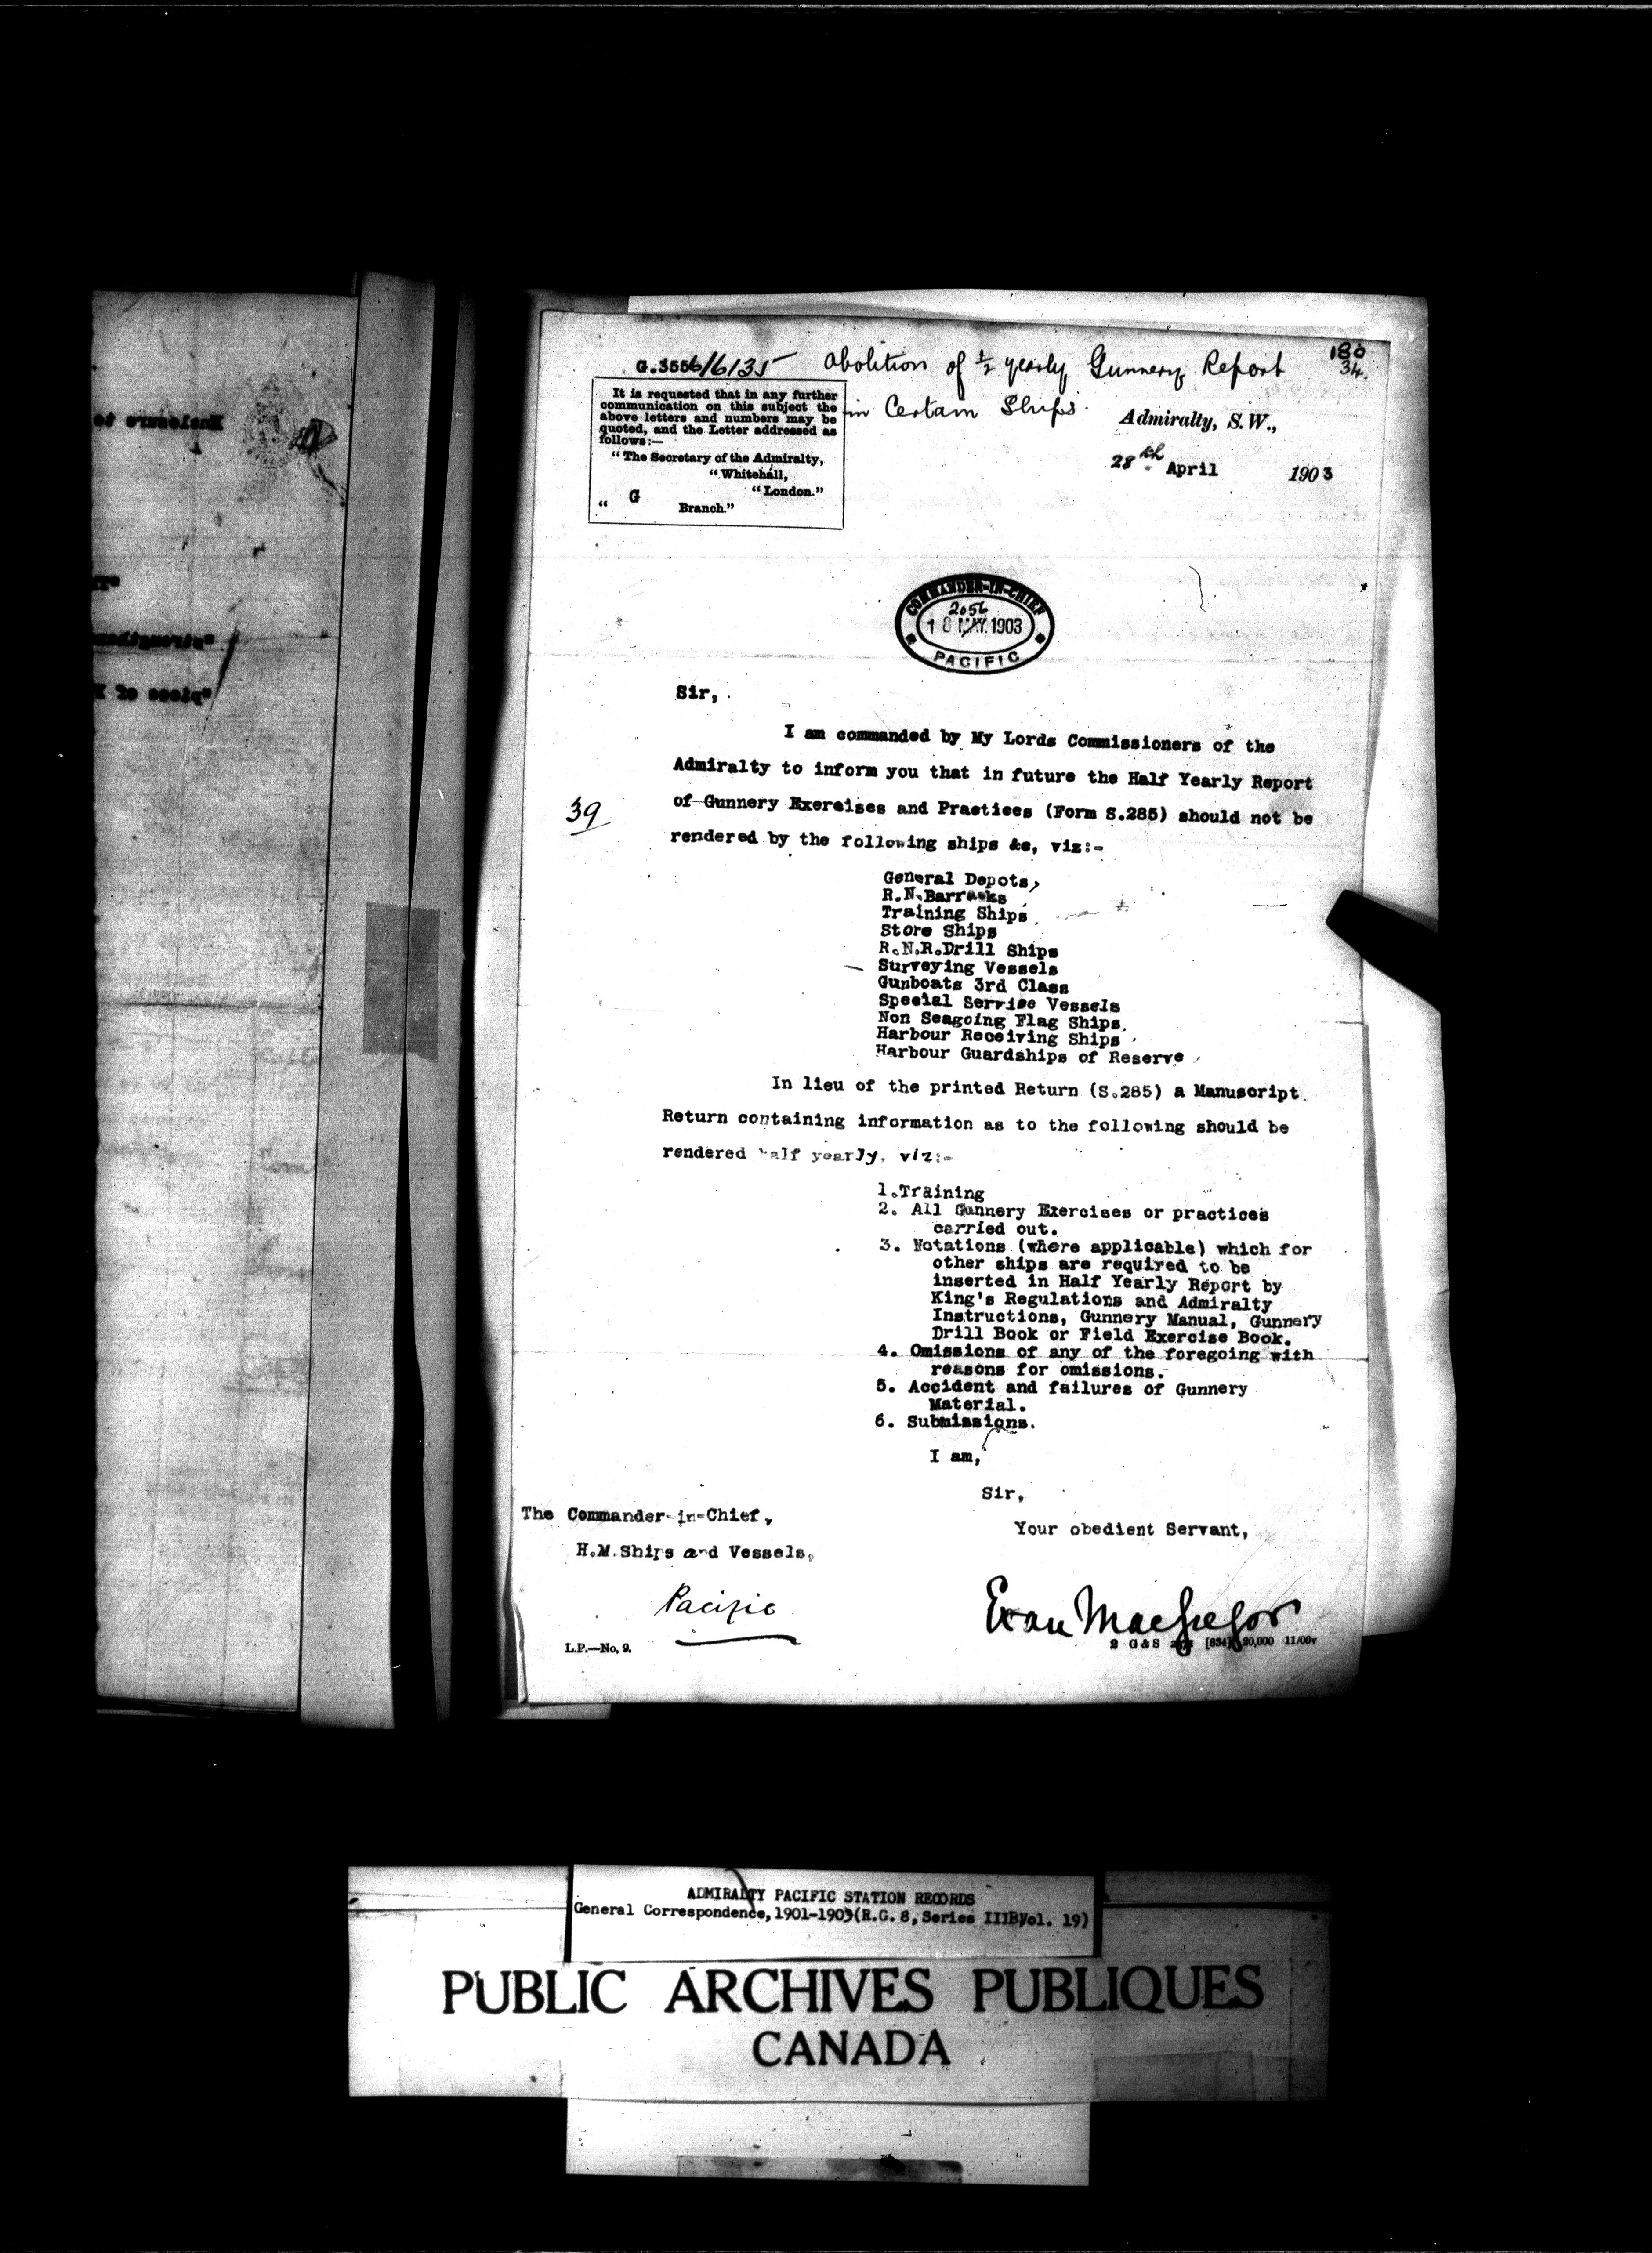 G.3556/6135 Abolition of ½ yearly Gunnery Report
in Certain Ships.
180
34.
It is requested that in any further
communication on this subject the
above letters and numbers may be
quoted, and the Letter addressed as
follows:—
"The Secretary of the Admiralty,
"Whitehall,
"London."
" G
Branch."
Admiralty, S.W.,
28th April 1903
COMMANDER-IN-CHIEF
2056
18 MAY.1903
PACIFIC
Sir,
I am commanded by My Lords Commissioners of the
Admiralty to inform you that in future the Half Yearly Report
of Gunnery Exercises and Practices (Form S.285) should not be
39
rendered by the following ships &c, viz:-
General Depots,
R.N.Barracks
Training Ships
Store Ships
R.N.R.Drill Ships
Surveying Vessels
Gunboats 3rd Class
Special Service Vessels
Non Seagoing Flag Ships.
Harbour Receiving Ships
Harbour Guardships of Reserve
In lieu of the printed Return (S.285) a Manuscript
Return containing information as to the following should be
rendered half yearly, viz:-
1.Training
2. All Gunnery Exercises or practices
carried out.
3. Notations (where applicable) which for
other ships are required to be
inserted in Half Yearly Report by
King's Regulations and Admiralty
Instructions, Gunnery Manual, Gunnery
Drill Book or Field Exercise Book.
4. Omissions of any of the foregoing with
reasons for omissions.
5. Accident and failures of Gunnery
Material.
6. Submissions.
I am,
Sir,
Your obedient Servant,
The Commander-in-Chief,
H.M.Ships and Vessels,
Pacific
Evan MacGregor
L.P.—No. 9.
2 G & S [834] 20,000 11/00v
Enclosure to
"strengthen
"piece of
ADMIRALTY PACIFIC STATION RECORDS
General Correspondence,1901-1903(R.G.8,Series IIIB,Vol. 19)
PUBLIC ARCHIVES PUBLIQUES
CANADA